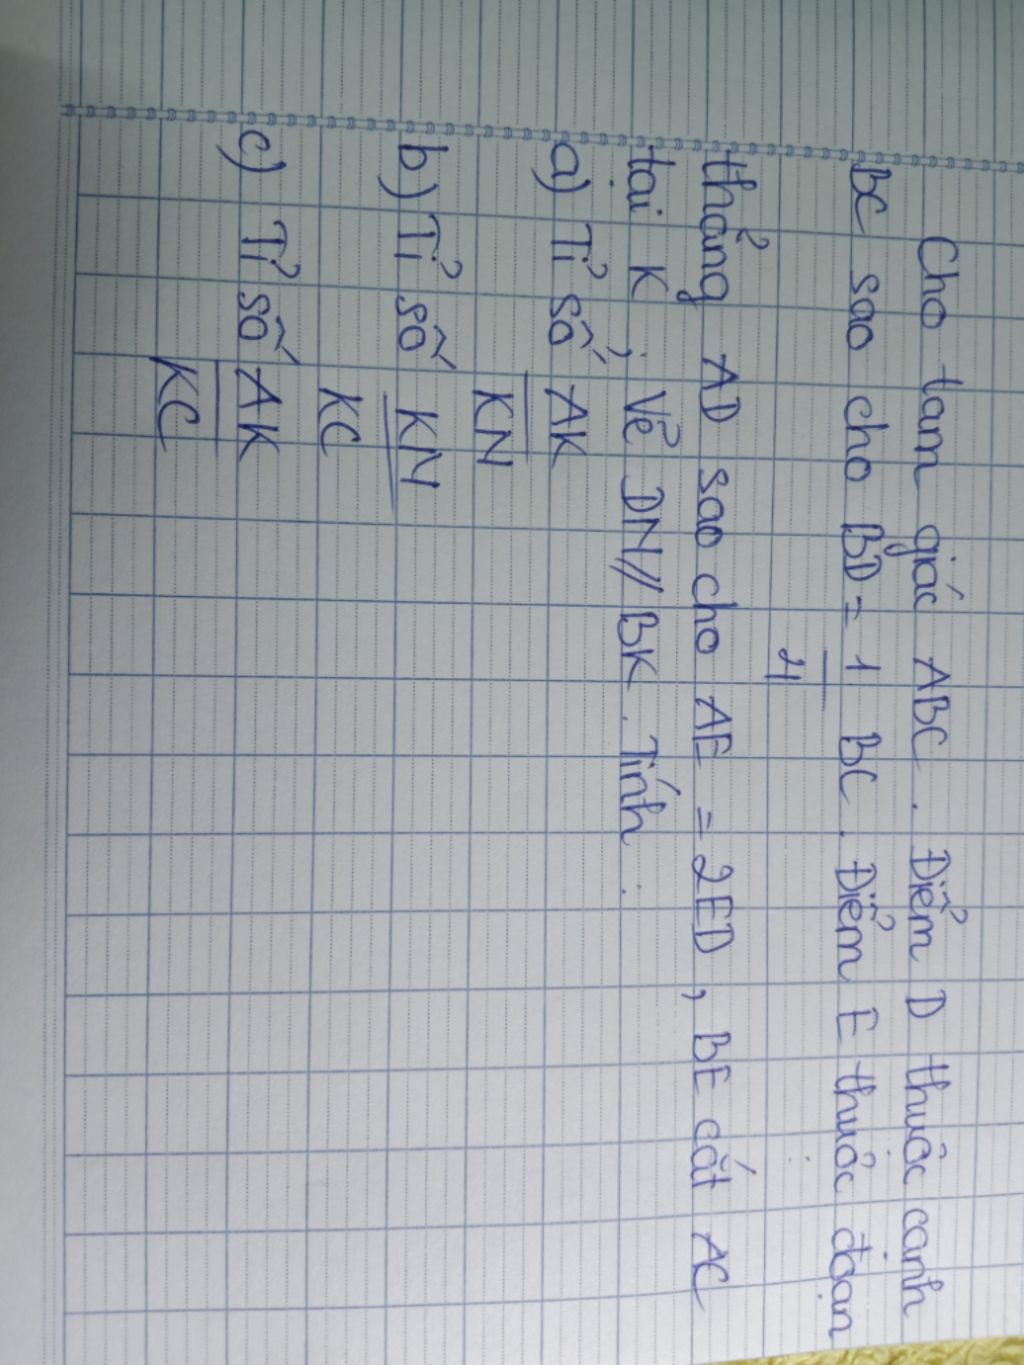 Cho tam giác ABC. Điểm D thuộc cạnh
BC sao cho BD = 1 BC. Điểm E thuộc đoạn
4
thẳng AD sao cho AE = 2ED, BE cắt AC
tại K; Vẽ DN // BK. Tính:
a) Tỉ số AK
KN
b) Tỉ số KN
KC
c) Tỉ số AK
KC